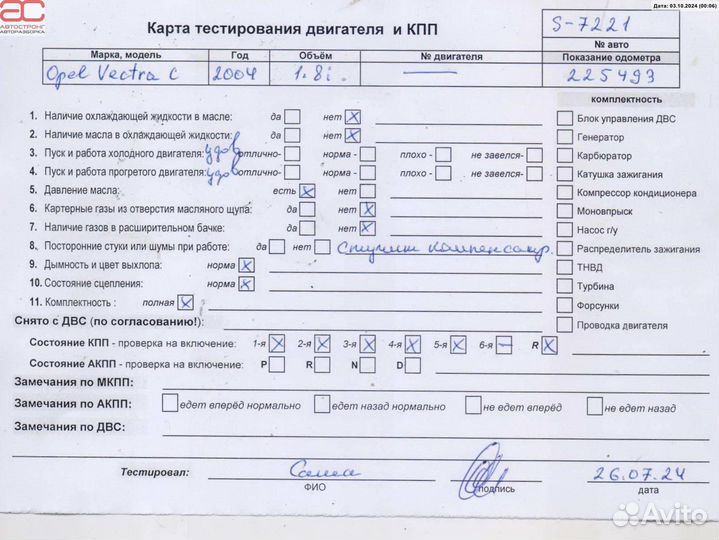 Дата: 03.10.2024 (00:06)
АС
АВТОСТРОНГ
АВТОРАЗБОРКА
Карта тестирования двигателя и КПП
S-7221
№ авто
Марка, модель Год Объём № двигателя Показание одометра
Opel Vectra C 2004 1.8i — 225493
комплектность
1. Наличие охлаждающей жидкости в масле: да нет X
Блок управления ДВС
2. Наличие масла в охлаждающей жидкости: да нет X
Генератор
3. Пуск и работа холодного двигателя: удов отлично- норма - плохо - не завелся-
Карбюратор
4. Пуск и работа прогретого двигателя: удов отлично- норма - плохо - не завелся-
Катушка зажигания
5. Давление масла: есть X нет
Компрессор кондиционера
6. Картерные газы из отверстия масляного щупа: да нет X
Моновпрыск
7. Наличие газов в расширительном бачке: да нет X
Насос г/у
8. Посторонние стуки или шумы при работе: да нет Стучит компенсатор.
Распределитель зажигания
9. Дымность и цвет выхлопа: норма X
ТНВД
10. Состояние сцепления: норма X
Турбина
11. Комплектность : полная X
Форсунки
Снято с ДВС (по согласованию!):
Проводка двигателя
Состояние КПП - проверка на включение: 1-я X 2-я X 3-я X 4-я X 5-я X 6-я — R X
Состояние АКПП - проверка на включение: P R N D
Замечания по МКПП:
Замечания по АКПП: едет вперёд нормально едет назад нормально не едет вперёд не едет назад
Замечания по ДВС:
Тестировал: Саша 26.07.24
ФИО подпись дата
Avito